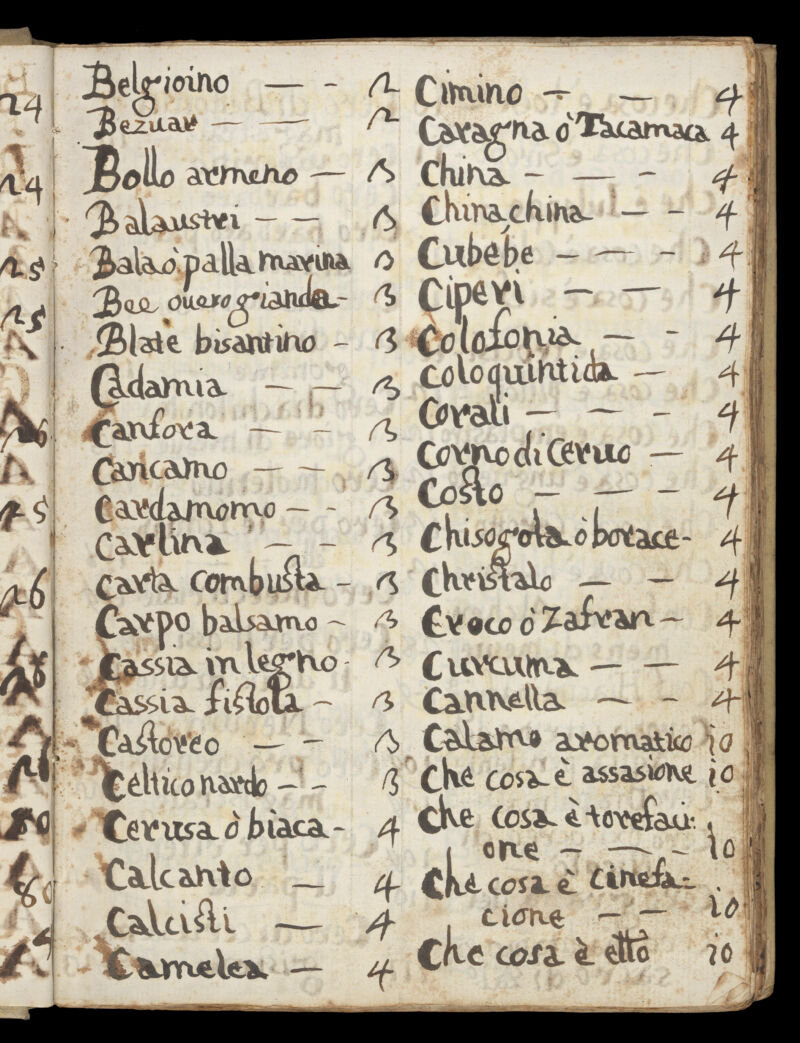 Belgioino — - 2
Bezuar — — 2
Bollo armeno — 3
Balaustri — — 3
Bala o' palla marina 3
Bee ouero gianda - 3
Blate bisantino - 3
Cadamia — — 3
Canfora — — 3
Cancamo — — 3
Cardamomo — - 3
Carlina — — 3
Carta combusta - 3
Carpo balsamo - 3
Cassia in legno - 3
Cassia fistola - 3
Castoreo — - 3
Celtico nardo - - 3
Cerusa ò biaca - 4
Calcanto — 4
Calcisti — 4
Camelea — 4
Cimino — — 4
Caragna ò Tacamaca 4
China - — - 4
China china — - 4
Cubebe — — - 4
Ciperi — — 4
Colofonia — - 4
Coloquintida — 4
Corali — — - 4
Corno di Ceruo — 4
Costo — — - 4
Chisogola ò borace - 4
Christalo — — 4
Croco ò Zafran - 4
Curcuma — — 4
Cannella — - 4
Calamo aromatico 10
Che cosa è assasione 10
Che cosa è torefaci:
one — — - 10
Che cosa è Cinefa:
cione — — 10
Che cosa è etto 10
24
24
25
25
26
25
26
26
80
80